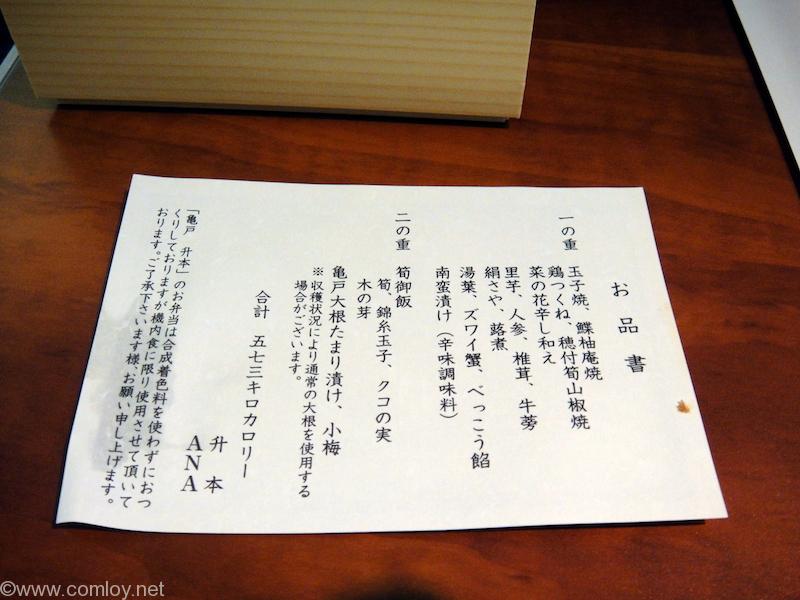 お品書
一の重
玉子焼、鰹柚庵焼
鶏つくね、穂付筍山椒焼
菜の花辛し和え
里芋、人参、椎茸、牛蒡
絹さや、蕗煮
湯葉、ズワイ蟹、べっこう餡
南蛮漬け（辛味調味料）
二の重
筍御飯
筍、錦糸玉子、クコの実
木の芽
亀戸大根たまり漬け、小梅
※収穫状況により通常の大根を使用する
場合がございます。
合計 五七三キロカロリー
升本
ANA
「亀戸 升本」のお弁当は合成着色料を使わずにおつ
くりしておりますが機内食に限り使用させて頂いて
おります。ご了承下さいます様、お願い申し上げます。
©www.comloy.net